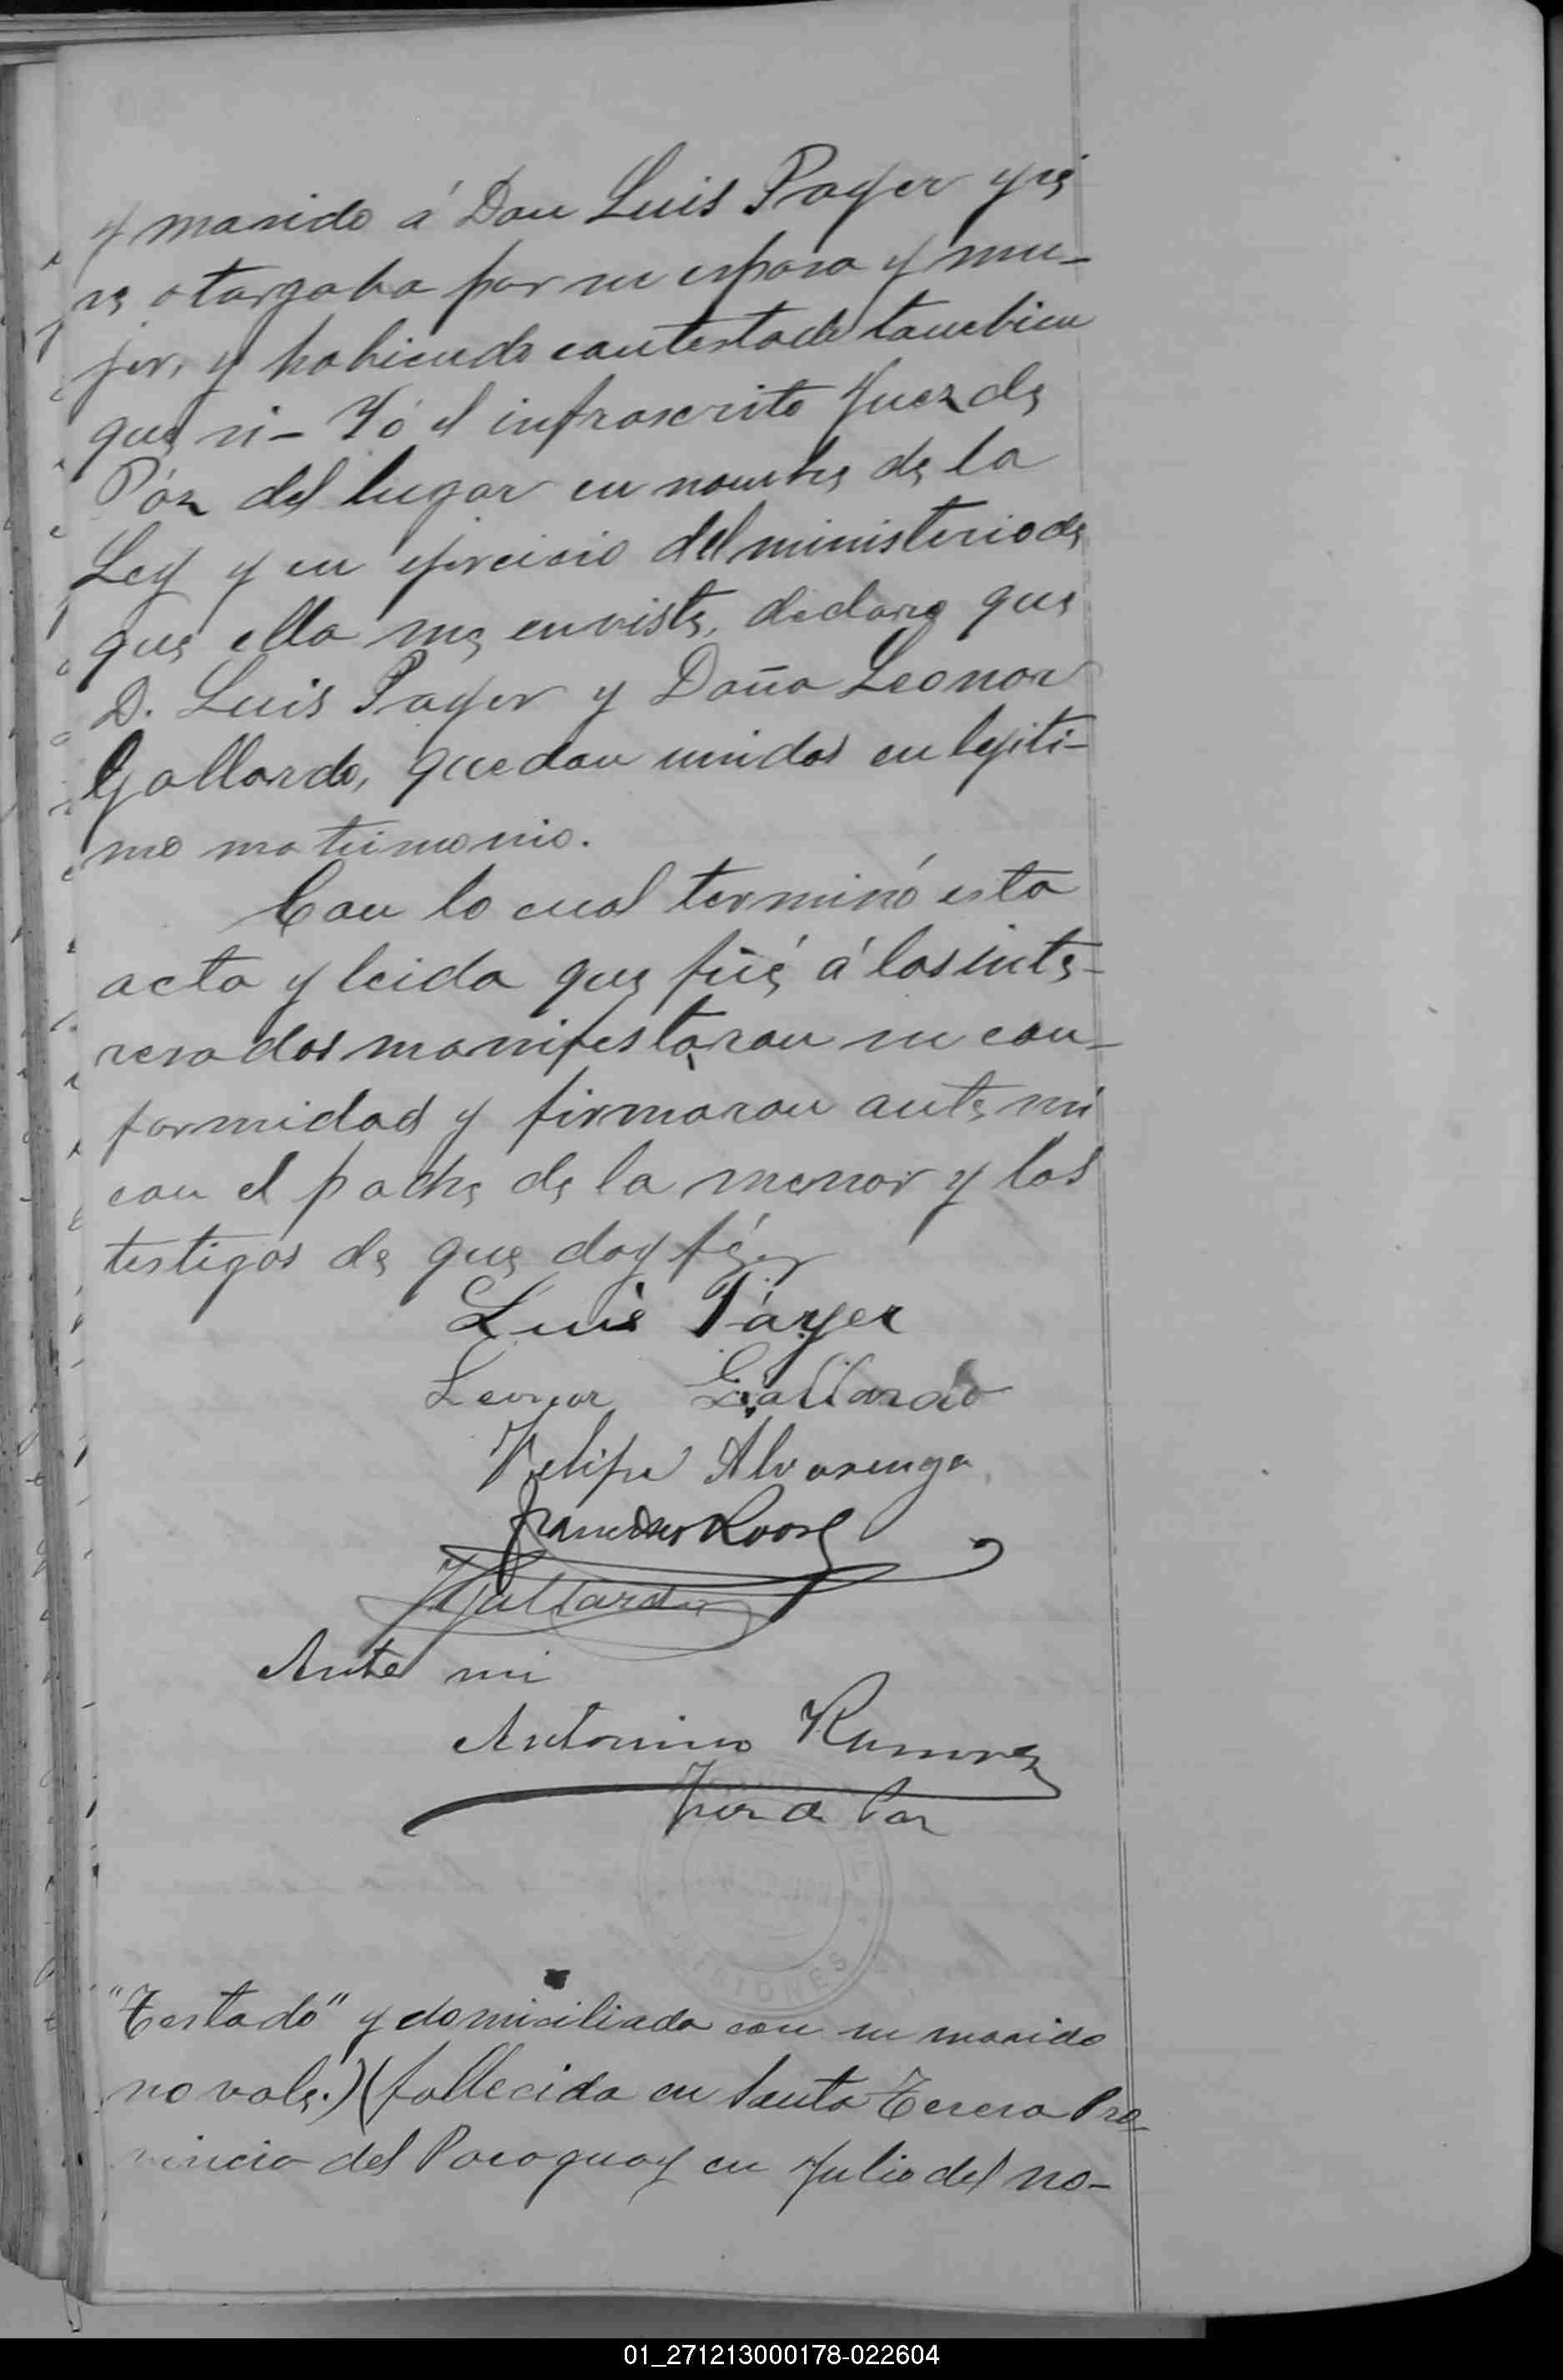 y marido á Don Luis Payer y si
se otorgaba por su esposa y mu-
jer, y habiendo contestado tambien
que si- Yó el infrascrito Juez de
Páz del lugar en nombre de la
Ley y en ejercicio del ministerio de
que ella me enviste, declaro que
D. Luis Payer y Doña Leonor
Gallardo, quedan unidos en legiti-
mo matrimonio.
Con lo cual terminó esta
acta y leida que fué á los inte-
resados manifestaron su con-
formidad y firmaron ante mi
con el padre de la menor y los
testigos de que doy fé
Luis Payer
Leonor Gallardo
Felipe Alvarenga
Francisco
Gallardo
Ante mi
Antonino Ramirez
Juez de Paz
MISIONES
"Testado" y domiciliada con su marido
no vale.) (fallecida en Santa Teresa Pro-
vincia del Paraguay en Julio del no-
01_271213000178-022604